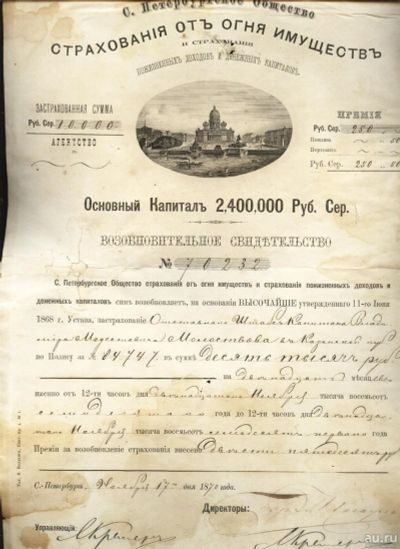 С. Петербургское Общество
СТРАХОВАНІЯ ОТЪ ОГНЯ ИМУЩЕСТВЪ
И СТРАХОВАНІЯ
ПОЖИЗНЕННЫХЪ ДОХОДОВЪ И ДЕНЕЖНЫХЪ КАПИТАЛОВЪ.
ЗАСТРАХОВАННАЯ СУММА
Руб. Сер. 10,000
АГЕНТСТВО
ПРЕМІЯ
Руб. Сер. 250
Руб. Сер. 250 00
Основный Капиталъ 2,400,000 Руб. Сер.
ВОЗОБНОВИТЕЛЬНОЕ СВИДѢТЕЛЬСТВО
№ 70232
С. Петербургское Общество страхованія отъ огня имуществъ и страхованія пожизненныхъ доходовъ и
денежныхъ капиталовъ симъ возобновляетъ, на основаніи ВЫСОЧАЙШЕ утвержденнаго 11-го Іюня
1868 г. Устава, застрахованіе Отставнаго Штабсъ Капитана Влади
міра Молоствова въ Казанской губ
по Полису за № 84747 въ суммѣ Десять тысячъ руб
на двѣнадцать мѣсяцевъ
именно отъ 12-ти часовъ дня Двѣнадцатаго Ноября тысяча восемьсотъ
семидесятаго года до 12-ти часовъ дня Двѣнадца
таго Ноября тысяча восемьсотъ семьдесятъ перваго года
Премія за возобновленіе страхованія внесена Двѣсти пятьдесятъ руб
С.-Петербургъ, Ноября 17 дня 1870 года.
Директоры:
Управляющій:
au.ru